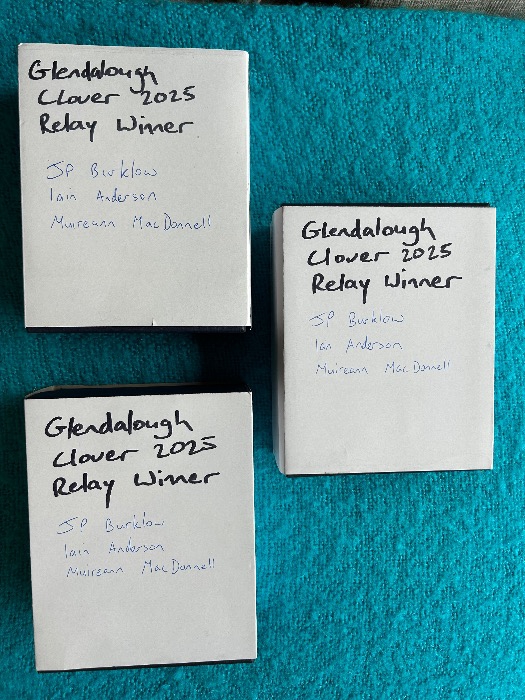 Glendalough
Clover 2025
Relay Winner
JP Burklow
Iain Anderson
Muireann MacDonnell
Glendalough
Clover 2025
Relay Winner
JP Burklow
Ian Anderson
Muireann MacDonnell
Glendalough
Clover 2025
Relay Winner
JP Burklow
Iain Anderson
Muireann MacDonnell